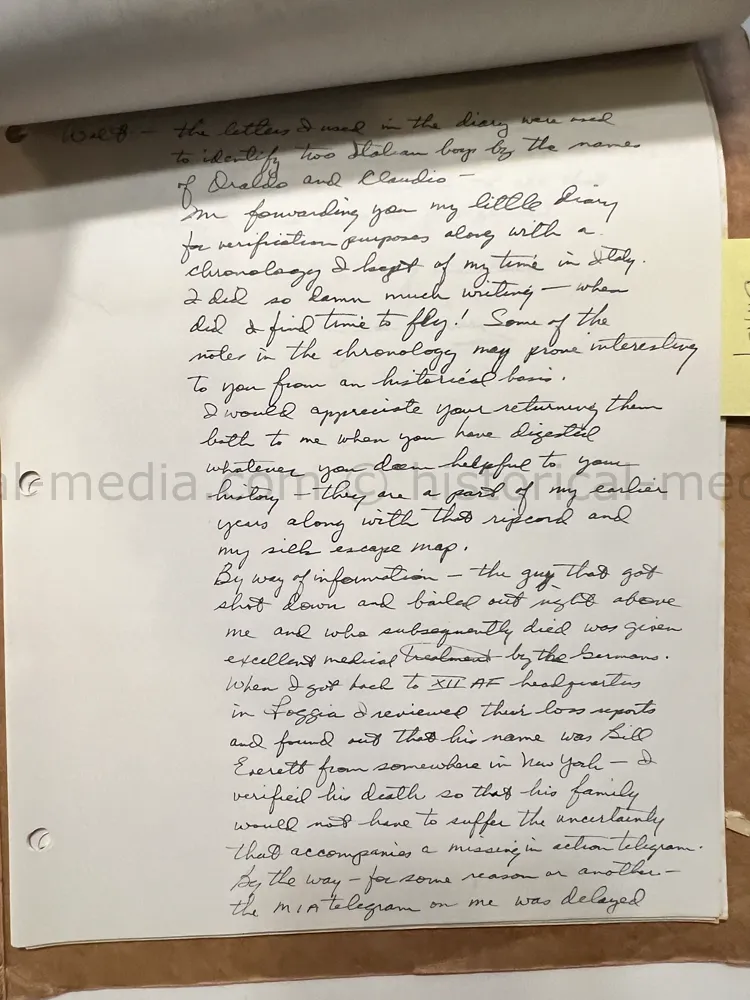 Walt — the letters I used in the diary were used
to identify two Italian boys by the names
of Oraldo and Claudio —
Im forwarding you my little diary
for verification purposes along with a
chronology I kept of my time in Italy.
I did so damn much writing — when
did I find time to fly! Some of the
notes in the chronology may prove interesting
to you from an historical basis.
I would appreciate your returning them
both to me when you have digested
whatever you deem helpful to your
history — they are a part of my earlier
years along with that ripcord and
my silk escape map.
By way of information — the guy that got
shot down and bailed out right above
me and who subsequently died was given
excellent medical treatment by the Germans.
When I got back to XII AF headquarters
in Foggia I reviewed their loss reports
and found out that his name was Bill
Everett from somewhere in New York — I
verified his death so that his family
would not have to suffer the uncertainty
that accompanies a missing in action telegram.
By the way — for some reason or another —
the MIA telegram on me was delayed
al-media.com © historical-me